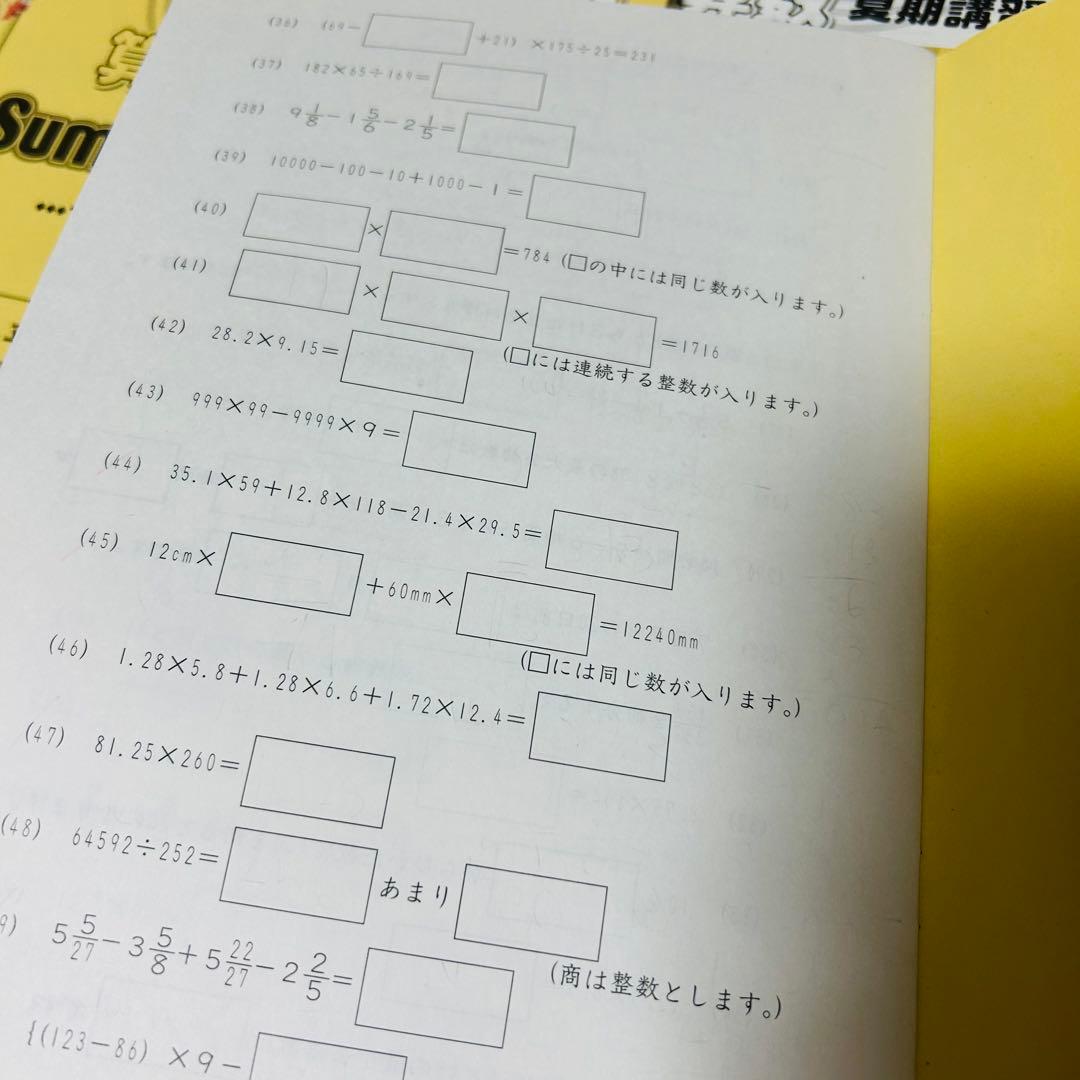 夏期講習
算
Sum
(36) (69−□+21) ×175÷25=231
(37) 182×65÷169=□
(38) 9 1/8−1 5/6−2 1/5=□
(39) 10000−100−10+1000−1=□
(40) □×□=784 (□の中には同じ数が入ります。)
(41) □×□×□=1716
(□には連続する整数が入ります。)
(42) 28.2×9.15=□
(43) 999×99−9999×9=□
(44) 35.1×59+12.8×118−21.4×29.5=□
(45) 12cm×□+60mm×□=12240mm
(□には同じ数が入ります。)
(46) 1.28×5.8+1.28×6.6+1.72×12.4=□
(47) 81.25×260=□
(48) 64592÷252=□あまり□
(商は整数とします。)
9) 5 5/27−3 5/8+5 22/27−2 2/5=□
{(123−86) ×9−□